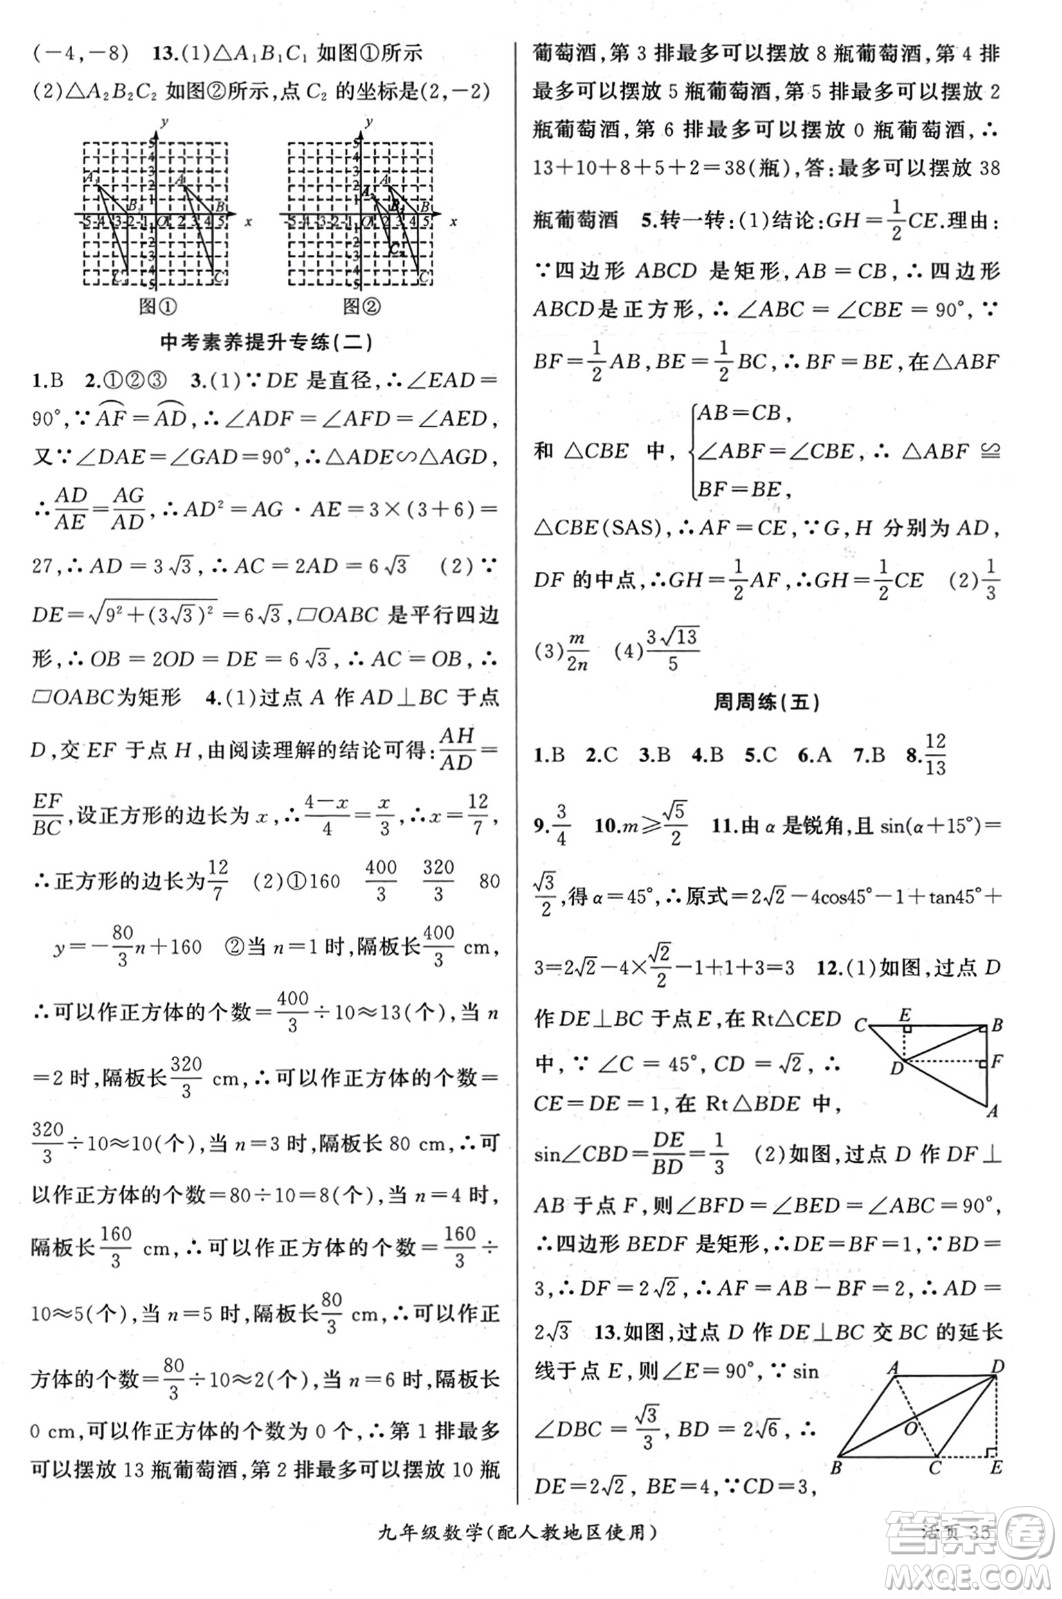 (-4,-8)　13.(1)△A₁B₁C₁ 如图①所示
(2)△A₂B₂C₂ 如图②所示,点 C₂ 的坐标是(2,-2)
图①　图②
中考素养提升专练(二)
1.B　2.①②③　3.(1)∵DE 是直径,∴∠EAD=
90°,∵AF⌒=AD⌒,∴∠ADF=∠AFD=∠AED,
又∵∠DAE=∠GAD=90°,∴△ADE∽△AGD,
∴AD/AE=AG/AD,∴AD²=AG·AE=3×(3+6)=
27,∴AD=3√3,∴AC=2AD=6√3　(2)∵
DE=√(9²+(3√3)²)=6√3,▱OABC 是平行四边
形,∴OB=2OD=DE=6√3,∴AC=OB,∴
▱OABC为矩形　4.(1)过点 A 作 AD⊥BC 于点
D,交 EF 于点 H,由阅读理解的结论可得:AH/AD=
EF/BC,设正方形的边长为 x,∴(4-x)/4=x/3,∴x=12/7,
∴正方形的边长为12/7　(2)①160　400/3　320/3　80
y=-80/3n+160　②当 n=1 时,隔板长400/3 cm,
∴可以作正方体的个数=400/3÷10≈13(个),当 n
=2 时,隔板长320/3 cm,∴可以作正方体的个数=
320/3÷10≈10(个),当 n=3 时,隔板长 80 cm,∴可
以作正方体的个数=80÷10=8(个),当 n=4 时,
隔板长160/3 cm,∴可以作正方体的个数=160/3÷
10≈5(个),当 n=5 时,隔板长80/3 cm,∴可以作正
方体的个数=80/3÷10≈2(个),当 n=6 时,隔板长
0 cm,可以作正方体的个数为 0 个,∴第 1 排最多
可以摆放 13 瓶葡萄酒,第 2 排最多可以摆放 10 瓶
葡萄酒,第 3 排最多可以摆放 8 瓶葡萄酒,第 4 排
最多可以摆放 5 瓶葡萄酒,第 5 排最多可以摆放 2
瓶葡萄酒,第 6 排最多可以摆放 0 瓶葡萄酒,∴
13+10+8+5+2=38(瓶),答:最多可以摆放 38
瓶葡萄酒　5.转一转:(1)结论:GH=1/2CE.理由:
∵四边形 ABCD 是矩形,AB=CB,∴四边形
ABCD是正方形,∴∠ABC=∠CBE=90°,∵
BF=1/2AB,BE=1/2BC,∴BF=BE,在△ABF
和 △CBE 中,{AB=CB, ∠ABF=∠CBE, BF=BE, ∴ △ABF ≌
△CBE(SAS),∴AF=CE,∵G,H 分别为 AD,
DF 的中点,∴GH=1/2AF,∴GH=1/2CE　(2)1/3
(3)m/2n　(4)3√13/5
周周练(五)
1.B　2.C　3.B　4.B　5.C　6.A　7.B　8.12/13
9.3/4　10.m≥√5/2　11.由 α 是锐角,且 sin(α+15°)=
√3/2,得 α=45°,∴原式=2√2-4cos45°-1+tan45°+
3=2√2-4×√2/2-1+1+3=3　12.(1)如图,过点 D
作 DE⊥BC 于点 E,在 Rt△CED
中,∵∠C=45°,CD=√2,∴
CE=DE=1,在 Rt△BDE 中,
C　E　B　D　F　A
sin∠CBD=DE/BD=1/3　(2)如图,过点 D 作 DF⊥
AB 于点 F,则∠BFD=∠BED=∠ABC=90°,
∴四边形 BEDF 是矩形,∴DE=BF=1,∵BD=
3,∴DF=2√2,∴AF=AB-BF=2,∴AD=
2√3　13.如图,过点 D 作 DE⊥BC 交 BC 的延长
线于点 E,则∠E=90°,∵sin
∠DBC=√3/3,BD=2√6,∴
DE=2√2,BE=4,∵CD=
A　D　O　B　C　E
九年级数学(配人教地区使用)
活页 35